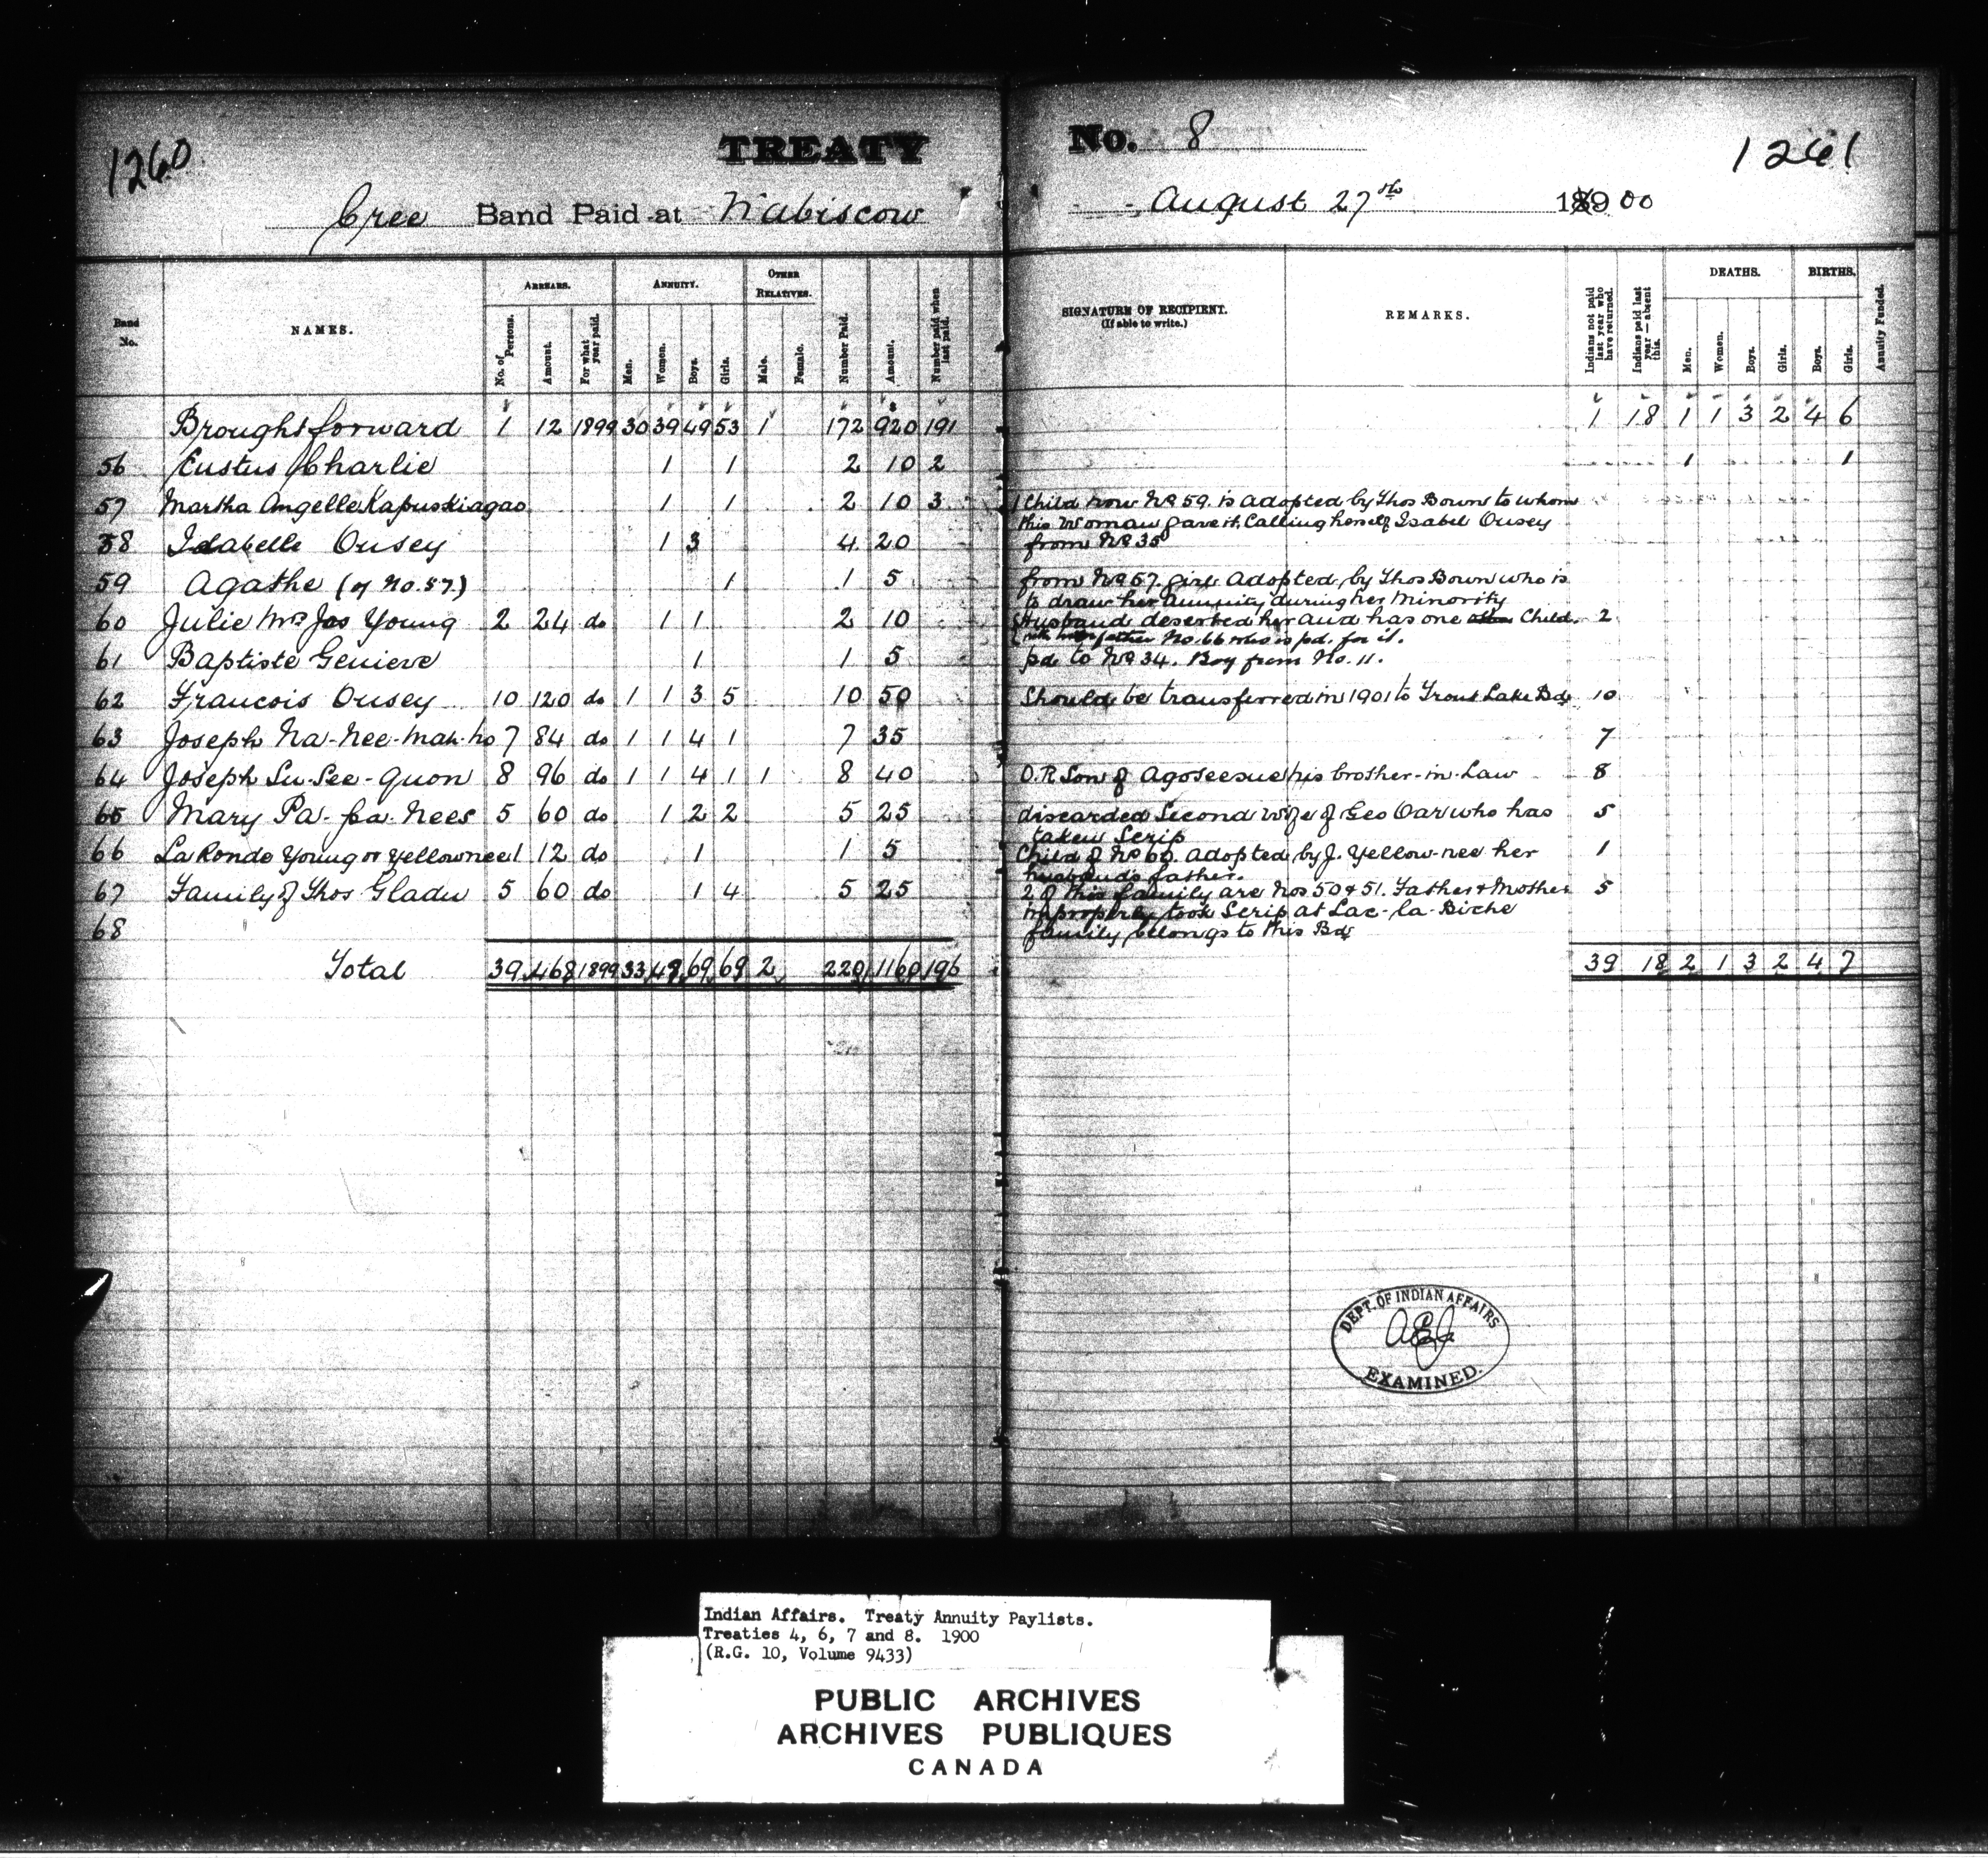 1260
TREATY
No. 8
1261
Cree Band Paid at Wabiscow
August 27th 1900
Band No.
NAMES.
ARREARS.
No. of Persons.
Amount.
For what year paid.
ANNUITY.
Men.
Women.
Boys.
Girls.
OTHER RELATIVES.
Male.
Female.
Number Paid.
Amount.
Number paid when last paid.
SIGNATURE OF RECIPIENT.
(If able to write.)
REMARKS.
Indians not paid last year who have returned.
Indians paid last year—absent this.
DEATHS.
Men.
Women.
Boys.
Girls.
BIRTHS.
Boys.
Girls.
Annuity Funded.
Brought forward 1 12 1899 30 39 49 53 1 172 920 191 1 18 1 1 3 2 4 6
56 Eustus Charlie 1 1 2 10 2 1 1
57 Martha Angelle Kapuskiagao 1 1 2 10 3 1 Child now No 59. is adopted by Thos Bown to whom
this Woman gave it. Calling herself Isabel Ousey
58 Isabelle Ousey 1 3 4 20 from No 35
59 Agathe (of No. 57.) 1 1 5 from No 57. girl Adopted by Thos Bown who is
to draw her annuity during her minority
60 Julie Mrs Jos Young 2 24 do 1 1 2 10 Husband deserted her and has one Child. 2
with father No. 66 who is pd. for it.
61 Baptiste Genieve 1 1 5 pd to No 34. Boy from No. 11.
62 Francois Ousey 10 120 do 1 1 3 5 10 50 Should be transferred in 1901 to Trout Lake Bd 10
63 Joseph Na-Nee-Mah-ho 7 84 do 1 1 4 1 7 35 7
64 Joseph Su-See-Quon 8 96 do 1 1 4 1 1 8 40 O.R Son of Agoseesue his brother-in-Law 8
65 Mary Pa-pa-Nees 5 60 do 1 2 2 5 25 discarded Second wife of Geo Oar who has 5
taken Scrip
66 La Ronde Young or Yellownee 1 12 do 1 1 5 Child of No 60. adopted by J. Yellow-nee her 1
husbands father.
67 Family of Thos Gladu 5 60 do 1 4 5 25 2 of this family are Nos 50 & 51. Father & Mother 5
improperly took Scrip at Lac-la-Biche
68 family belongs to this Bd
Total 39 468 1899 33 48 69 69 2 220 1160 196 39 18 2 1 3 2 4 7
DEPT. OF INDIAN AFFAIRS
EXAMINED.
Indian Affairs. Treaty Annuity Paylists.
Treaties 4, 6, 7 and 8. 1900
(R.G. 10, Volume 9433)
PUBLIC ARCHIVES
ARCHIVES PUBLIQUES
CANADA